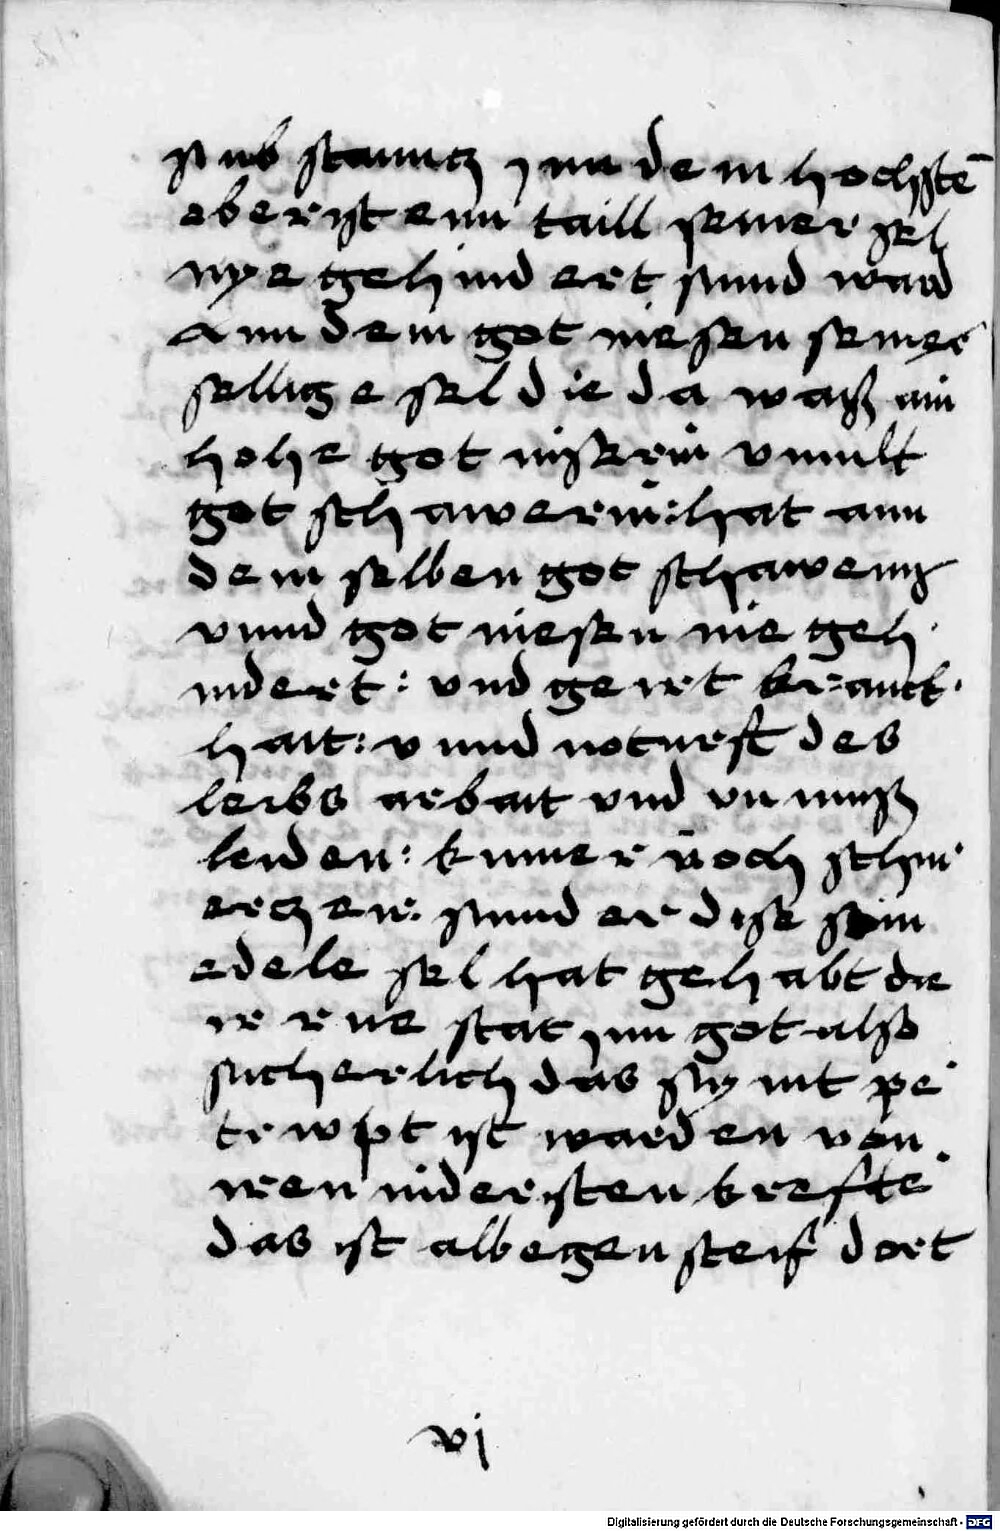 sub stanntz jnn dem hochstē
oberisten taill seiner sel
nye gehindert sunnd ward
Ann dem got niesen seines
sellige sel die da waß ain
hohe got nisserin vnnd
got schawerin: hat ann
dem selben got schawenn
vnnd got niesen nie geh
indert: vnd geirt kranck
hait: vnnd noturft des
leibs arbait vnd vn muß
leiden: kumer noch schm
ertzen: sunnd er dise sein
edele sel hat gehabt die
ir rue stat jnn got also
sicherlich das sy nit pe
trwpt ist warden von
iren nidersten krefte
das ist albegen steif dort
vj
Digitalisierung gefördert durch die Deutsche Forschungsgemeinschaft - DFG